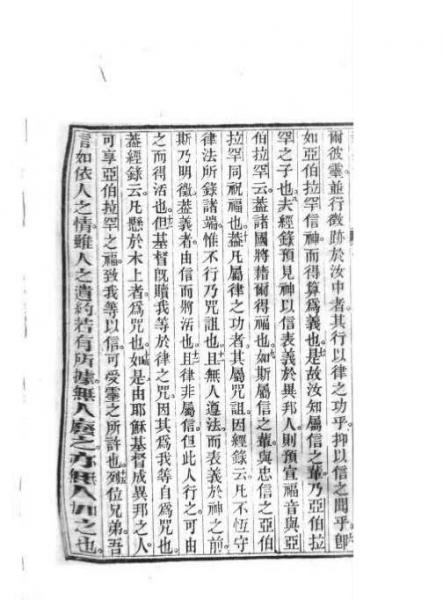 爾彼靈並行徵跡於汝中者其行以律之功乎抑以信之聞乎卽
如亞伯拉罕信神而得算爲義也是故汝知屬信之輩乃亞伯拉
罕之子也夫經錄預見神以信表義於異邦人則預宣福音與亞
伯拉罕云葢諸國將藉爾得福也如斯屬信之輩與忠信之亞伯
拉罕同祝福也葢凡屬律之功者其屬咒詛因經錄云凡不恆守
律法所錄諸端惟不行乃咒詛也且無人遵法而表義於神之前
斯乃明徵葢義者由信而將活也且律非屬信但此人行之可由
之而得活也但基督旣贖我等於律之咒因其爲我等自爲咒也
葢經錄云凡懸於木上者爲咒也如是由耶穌基督成異邦之人
可享亞伯拉罕之福致我等以信可受靈之所許也列位兄弟吾
言如依人之情雖人之遺約若有所據無人廢之亦無人加之也